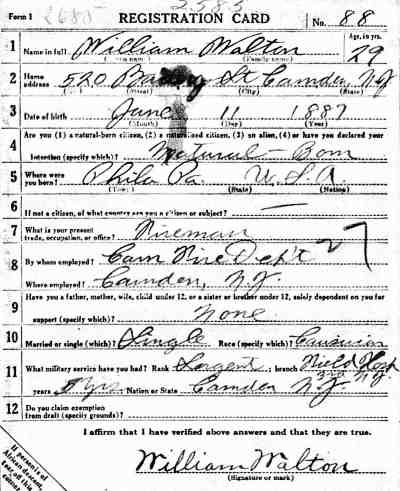 Form 1 2685 2585 REGISTRATION CARD No. 88
1 Name in full William Walton Age, in yrs. 29
(Given name) (Family name)
2 Home address 520 Bailey St Camden, N.J
(Street) (City) (State)
3 Date of birth June 11 1887
(Month) (Day) (Year)
Are you (1) a natural-born citizen, (2) a naturalized citizen, (3) an alien, (4) or have you declared your
4 intention (specify which)? Natural-Born
5 Where were you born? Phila Pa. U.S.A.
(Town) (State) (Nation)
6 If not a citizen, of what country are you a citizen or subject? —
7 What is your present trade, occupation, or office? Fireman 27
8 By whom employed? Cam Fire Dep't
Where employed? Camden, N.J.
9 Have you a father, mother, wife, child under 12, or a sister or brother under 12, solely dependent on you for
support (specify which)? None
10 Married or single (which)? Single Race (specify which)? Caucasian
11 What military service have you had? Rank Sergent; branch Field Hosp
3rd N.J.
years 5 yrs. Nation or State Camden N.J.
12 Do you claim exemption from draft (specify grounds)?
I affirm that I have verified above answers and that they are true.
William Walton
(Signature or mark)
If person is of African descent, tear off this corner